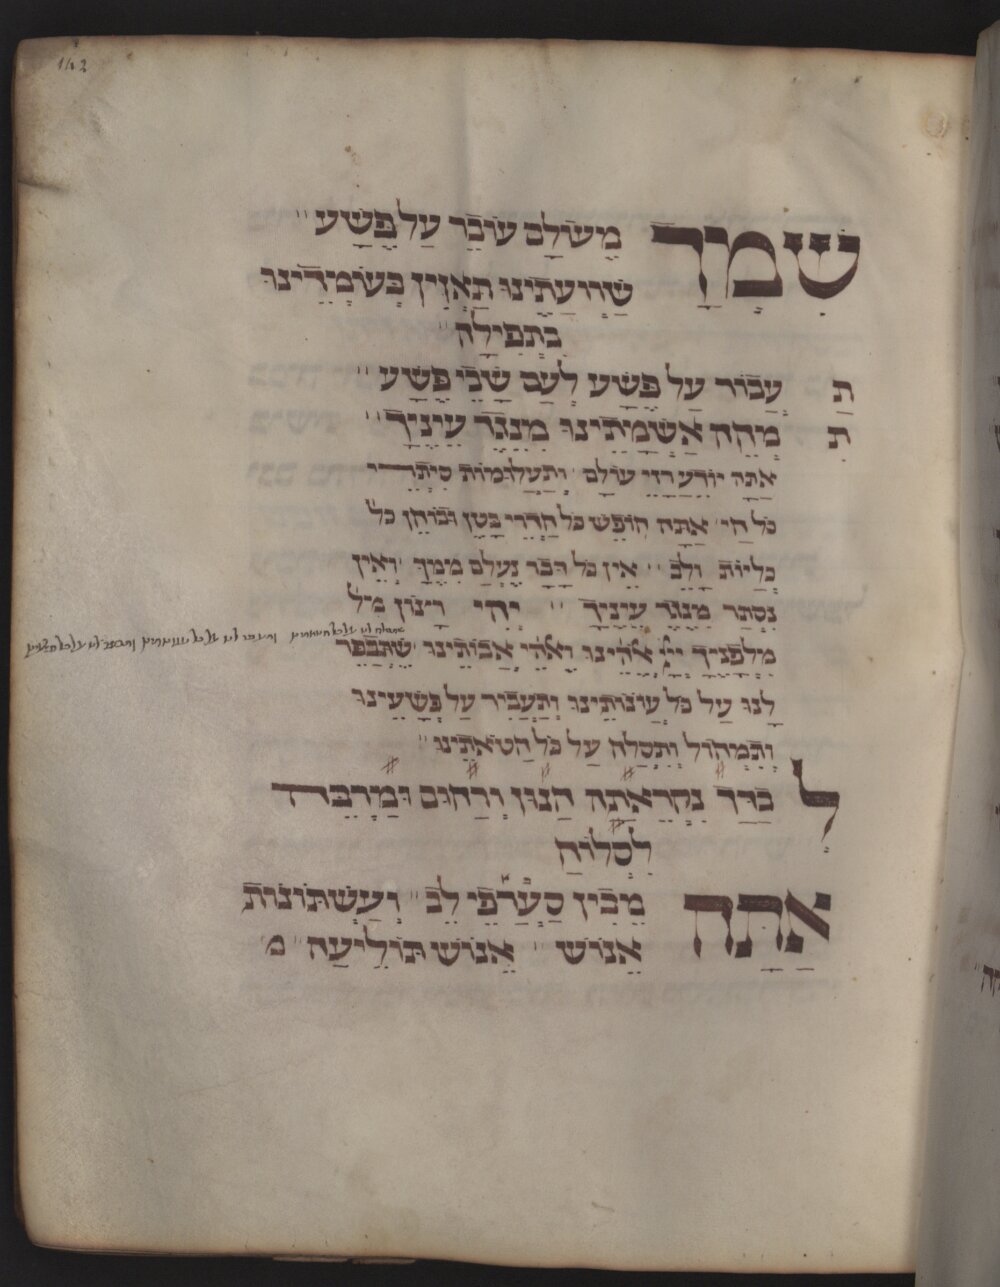 142
שִׁמְךָ מֵעוֹלָם עוֹבֵר עַל פֶּשַׁע
שַׁוְועָתֵינוּ תַּאֲזִין בְּעוֹמְדֵינוּ
בִתְפִילָה
תַּ עֲבוֹר עַל פֶּשַׁע לְעַם שָׁבֵי פֶשַׁע
תִ מְחֶה אַשְׁמָתֵינוּ מִנֶּגֶד עֵינֶיךָ
אַתָּה יוֹדֵעַ רָזֵי עוֹלָם וְתַעֲלוּמוֹת סִיתְרֵי
כָל חַי אַתָּה חוֹפֵשׂ כָּל חַדְרֵי בָטֶן וּבוֹחֵן כל
כְּלָיוֹת וָלֵב אֵין כָּל דָּבָר נֶעְלָם מִמֶּךָ וְאֵין
נִסְתָּר מִנֶּגֶד עֵינֶיךָ יְהִי רָצוֹן מל
מִלְּפָנֶיךָ ייי אֱלֹהֵינוּ וֵאלֹהֵי אֲבוֹתֵינוּ שֶׁתְּכַפֵּר
לָנוּ עַל כָּל עֲוֹנוֹתֵינוּ וְתַעֲבִיר עַל פְּשָׁעֵינוּ
וְתִמְחוֹל וְתִסְלַח עַל כָּל חַטֹּאתֵינוּ
לְ בַדְּךָ נִקְרֵאתָה חַנּוּן וְרַחוּם וּמַרְבֶּה
לִסְלוֹחַ
אַתָּה מֵבִין סַעֲרַפֵּי לֵב וְעֶשְׁתּוֹנוֹת
אֱנוֹשׁ אֱנוֹשׁ תּוֹלֵיעָה מ